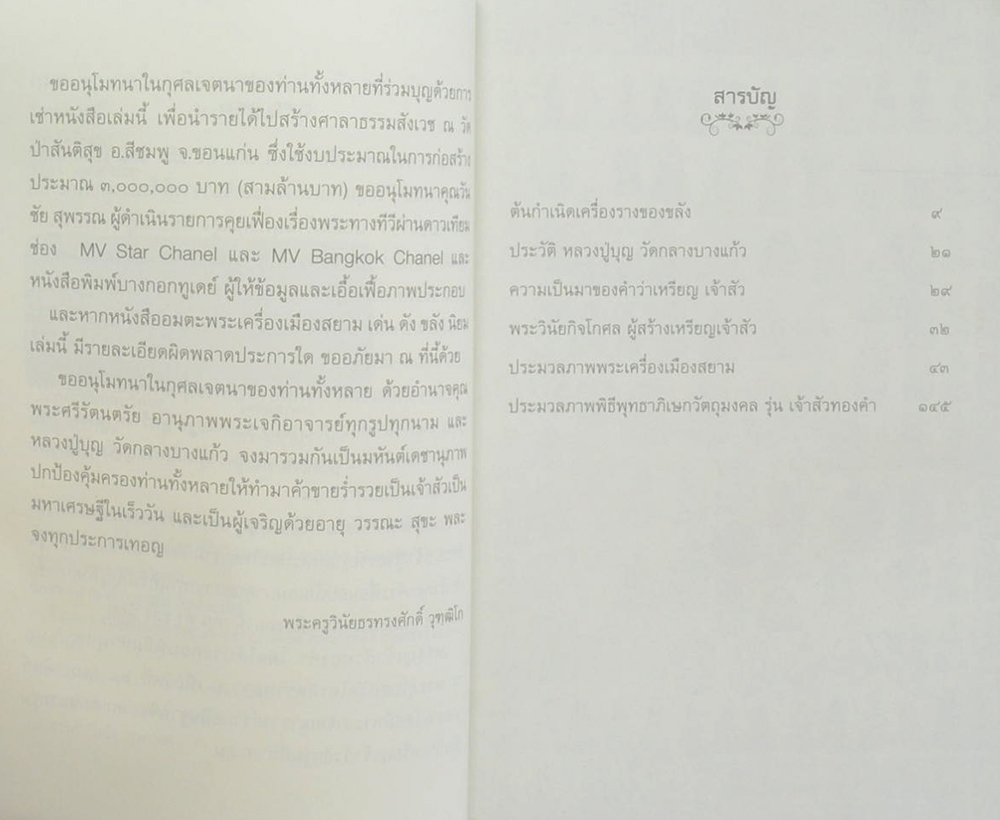 ขออนุโมทนาในกุศลเจตนาของท่านทั้งหลายที่ร่วมบุญด้วยการ
เช่าหนังสือเล่มนี้ เพื่อนำรายได้ไปสร้างศาลาธรรมสังเวช ณ วัด
ป่าสันติสุข อ.สีชมพู จ.ขอนแก่น ซึ่งใช้งบประมาณในการก่อสร้าง
ประมาณ ๓,๐๐๐,๐๐๐ บาท (สามล้านบาท) ขออนุโมทนาคุณวัน
ชัย สุพรรณ ผู้ดำเนินรายการคุยเฟื่องเรื่องพระทางทีวีผ่านดาวเทียม
ช่อง MV Star Chanel และ MV Bangkok Chanel และ
หนังสือพิมพ์บางกอกทูเดย์ ผู้ให้ข้อมูลและเอื้อเฟื้อภาพประกอบ
และหากหนังสืออมตะพระเครื่องเมืองสยาม เด่น ดัง ขลัง นิยม
เล่มนี้ มีรายละเอียดผิดพลาดประการใด ขออภัยมา ณ ที่นี้ด้วย
ขออนุโมทนาในกุศลเจตนาของท่านทั้งหลาย ด้วยอำนาจคุณ
พระศรีรัตนตรัย อานุภาพพระเจกิอาจารย์ทุกรูปทุกนาม และ
หลวงปู่บุญ วัดกลางบางแก้ว จงมารวมกันเป็นมหันต์เดชานุภาพ
ปกป้องคุ้มครองท่านทั้งหลายให้ทำมาค้าขายร่ำรวยเป็นเจ้าสัวเป็น
มหาเศรษฐีในเร็ววัน และเป็นผู้เจริญด้วยอายุ วรรณะ สุขะ พละ
จงทุกประการเทอญ
พระครูวินัยธรทรงศักดิ์ วุฑฺฒิโก
สารบัญ
ต้นกำเนิดเครื่องรางของขลัง ๙
ประวัติ หลวงปู่บุญ วัดกลางบางแก้ว ๒๑
ความเป็นมาของคำว่าเหรียญ เจ้าสัว ๒๙
พระวินัยกิจโกศล ผู้สร้างเหรียญเจ้าสัว ๓๒
ประมวลภาพพระเครื่องเมืองสยาม ๔๓
ประมวลภาพพิธีพุทธาภิเษกวัตถุมงคล รุ่น เจ้าสัวทองคำ ๑๔๕